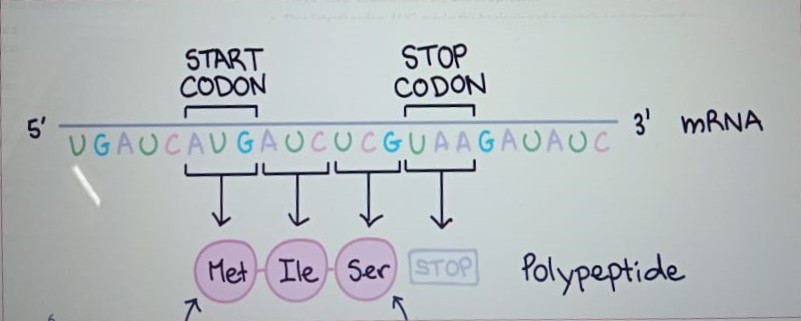 START CODON
STOP CODON
5' UGAUCAUGAUCUCGUAAGAUAUC 3' mRNA
Met Ile Ser STOP Polypeptide